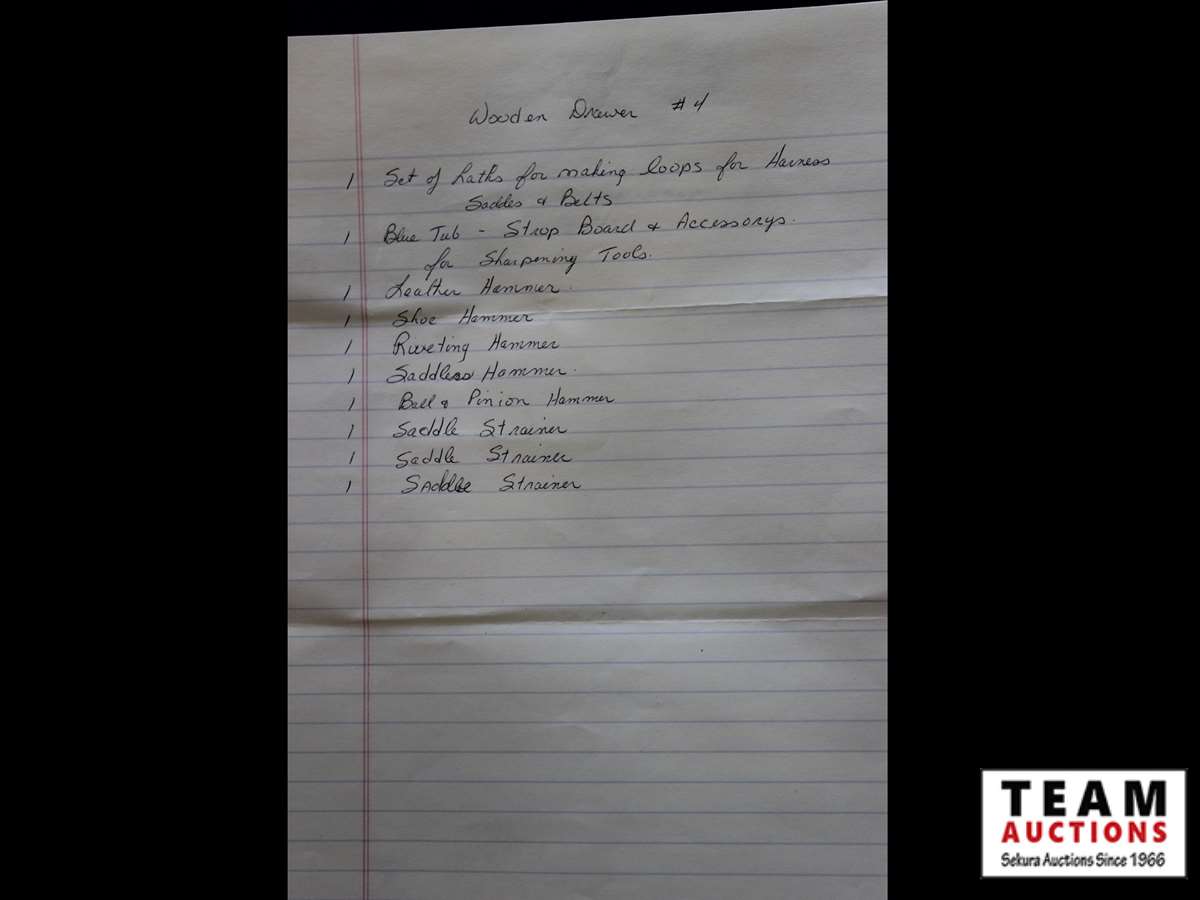 Wooden Drawer #4
1 Set of Laths for making loops for Harness
Saddles & Belts
1 Blue Tub - Strop Board & Accessorys.
for Sharpening Tools.
1 Leather Hammer.
1 Shoe Hammer
1 Riveting Hammer
1 Saddless Hammer.
1 Ball & Pinion Hammer
1 Saddle Strainer
1 Saddle Strainer
1 Saddle Strainer
TEAM
AUCTIONS
Sekura Auctions Since 1966